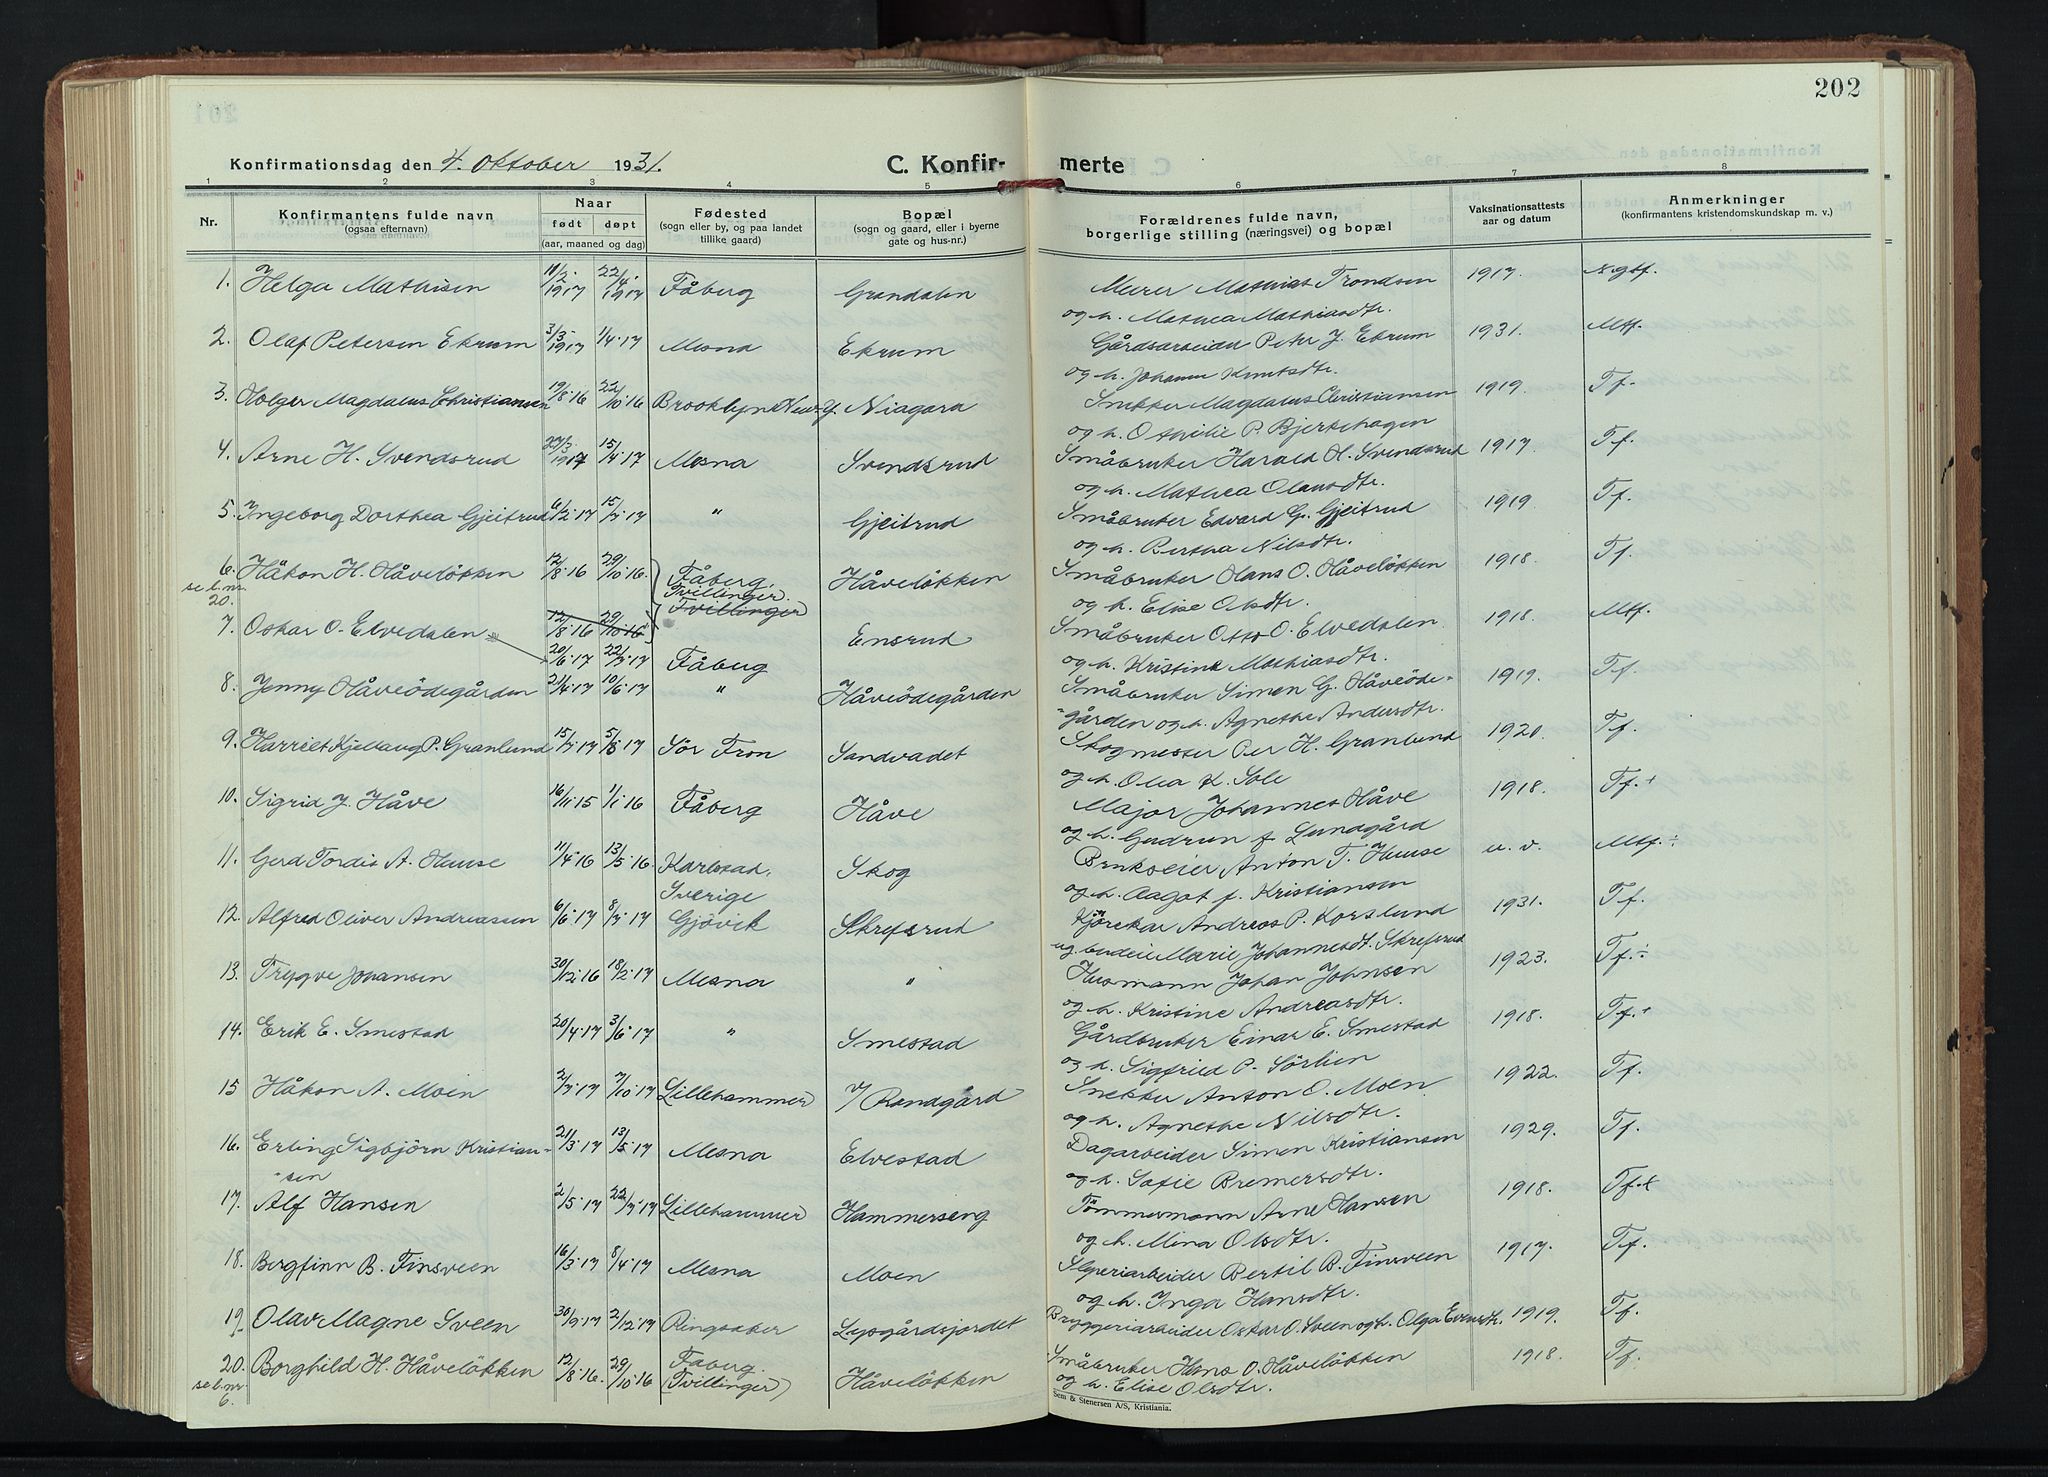 202
Konfirmationsdag den 4. Oktober 1931.
C. Konfirmerte
1 2 3 4 5 6 7 8
Nr.
Konfirmantens fulde navn
(ogsaa efternavn)
Naar
født døpt
(aar, maaned og dag)
Fødested
(sogn eller by, og paa landet
tillike gaard)
Bopæl
(sogn og gaard, eller i byerne
gate og hus-nr.)
Forældrenes fulde navn,
borgerlige stilling (næringsvei) og bopæl
Vaksinationsattests
aar og datum
Anmerkninger
(konfirmantens kristendomskundskap m. v.)
1. Helga Mathisen 11/2 1917 22/4 1917 Fåberg Grandalen Murer Mathias Trondsen 1917. Ngtf.
og h. Mathea Mathiasdtr.
2. Olaf Petersen Ekrum 3/3 1917 1/4.17 Mesna Ekrum Gårdsarbeider Peter J. Ekrum 1931. Mtf.
og h. Johanne Knutsdtr.
3. Holger Magdalus Christiansen 19/8.16 22/10.16 Brooklyn New Y. Niagara Snekker Magdalus Christiansen 1919. Tf.
og h. Othilie P. Bjerkehagen
4. Arne H. Svendsrud 27/3 1917 15/4.17 Mesna Svendsrud Småbruker Harald H. Svendsrud 1917. Tf.
og h. Mathea Olausdtr.
5. Ingeborg Dorthea Gjeitrud 6/2.17 15/7.17 " Gjeitrud Småbruker Edvard G. Gjeitrud 1919. Tf.
og h. Berthea Nilsdtr.
6. Håkon H. Håveløkken 12/8.16 29/10.16. Fåberg. Håveløkken Småbruker Hans O. Håveløkken 1918. Tf.
se l. nr. 20. Tvillinger. og h. Elise Olsdtr.
Tvillinger
7. Oskar O. Elvedalen 12/8.16 29/10.16 Ensrud Småbruker Otto O. Elvedalen 1918. Mtf.
20/6.17 22/7.17 Fåberg og h. Kristine Mathiasdtr.
8. Jenny Håveødegården 21/4.17 10/6.17 " Håveødegården Småbruker Simen G. Håveøde- 1919. Tf.
-gården og h. Agnethe Andersdtr.
9. Harriet Kjellaug P. Granlund 15/7.17 5/8.17 Sör Fron Sandvadet Skogmester Per H. Granlund 1920. Tf.
og h. Olea K. Sole
10. Sigrid J. Håve 16/11.15 1/1.16 Fåberg Håve Major Johannes Håve 1918. Tf.+
og h. Gudrun f. Lundgård
11. Gerd Tordis A. Huuse 11/4.16 13/5.16. Karlstad, Skog Brukseier Anton T. Huuse u.v. Mtf.÷
Sverige og h. Aagot f. Kristiansen
12. Alfred Oliver Andreassen 6/6.17 8/7.17 Gjövik Skrefsrud Kjörekar Andreas P. Korslund 1931. Tf.
ug. budeie Marie Johannesdt. Skrefsrud
13. Trygve Johansen 30/12.16 18/2.17 Mesna " Husmann Johan Johnsen 1923. Tf.÷
og h. Kristine Andreasdtr.
14. Erik E. Smestad 20/4.17 3/6.17 " Smestad Gårdbruker Einar E. Smestad 1918. Tf.+
og h. Sigfried P. Sörlien
15 Håkon A. Moen 2/7.17 7/10.17 Lillehammer v/ Randgård Snekker Anton O. Moen 1922. Tf.
og h. Agnethe Nilsdtr.
16. Erling Sigbjörn Kristian- 21/3.17 13/5.17 Mesna Elvestad Dagarbeider Simen Kristiansen 1929. Tf.
-sen og h. Sofie Bremersdtr.
17. Alf Hansen 2/5.17 22/7.17 Lillehammer Hammerseng Tömmermann Arne Hansen 1918. Tf.+
og h. Mina Olsdtr.
18. Bergfinn B. Finsveen 16/3.17 8/4.17 Mesna Moen Sliperiarbeider Bertil B. Finsveen 1917. Tf.
og h. Inga Hansdtr.
19. Olav Magne Sveen 30/9.17 2/12.17 Ringsaker Lysgårdsjordet Bryggeriarbeider Oskar O. Sveen og h. Olga Evensdtr. 1919. Tf.
20. Borghild H. Håveløkken 12/8.16. 29/10.16 Fåberg. Håveløkken Småbruker Hans O. Håveløkken 1918. Tf.
se l. nr. 6. (Tvillinger) og h. Elise Olsdtr.
Sem & Stenersen A/S, Kristiania.